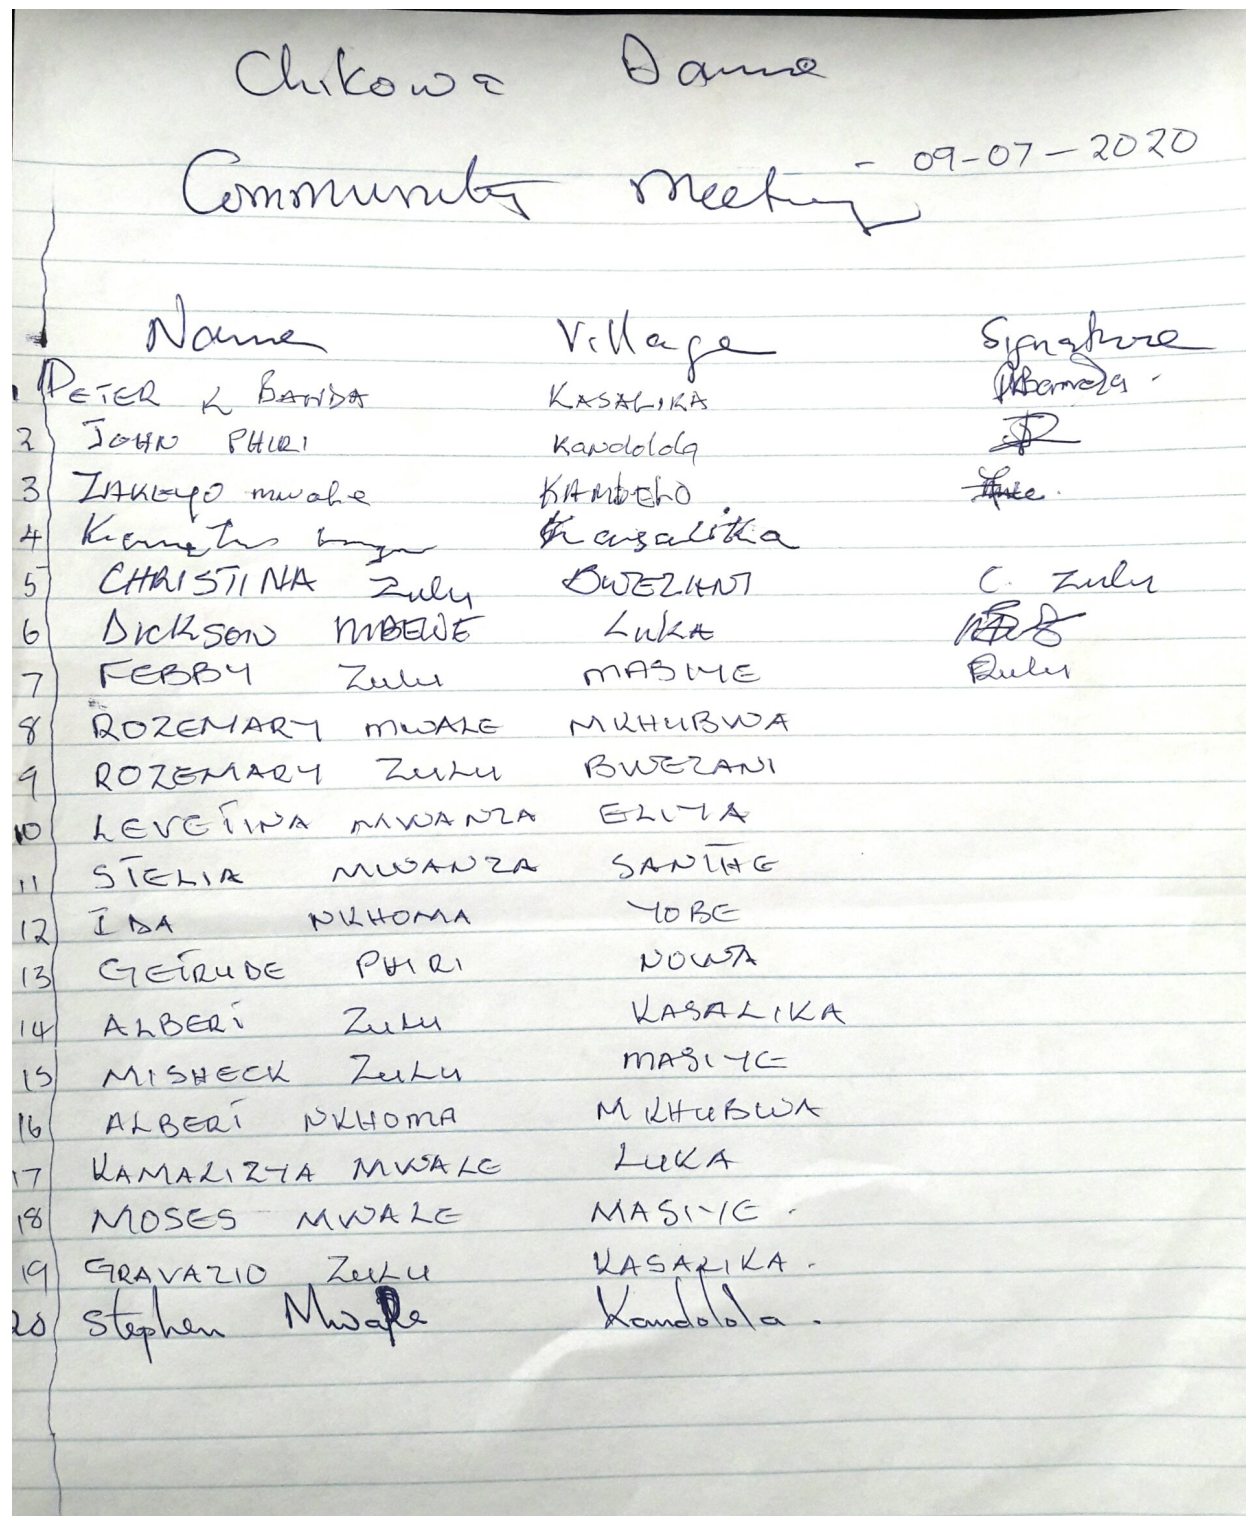 Chikowa Dam
Community Meeting - 09-07-2020
Name Village Signature
1 PETER K BANDA KASALIKA PKBanda
2 JOHN PHIRI Kandolola
3 ZAKEYO mwale KAMBELO
4 Kasalika
5 CHRISTINA Zulu BWEZANI C. Zulu
6 DICKSON MBEWE LUKA
7 FEBBY Zulu MASIYE Zulu
8 ROZEMARY MWALE MKHUBWA
9 ROZEMARY ZULU BWEZANI
10 LEVETINA MWANZA ELIYA
11 STELIA MWANZA SANTHE
12 IDA NKHOMA YOBE
13 GETRUDE PHIRI NOWA
14 ALBERT ZULU KASALIKA
15 MISHECK ZULU MASIYE
16 ALBERT NKHOMA MKHUBWA
17 KAMALIZYA MWALE LUKA
18 MOSES MWALE MASIYE.
19 GRAVAZIO ZULU KASALIKA.
20 Stephen Mwale Kandolola.